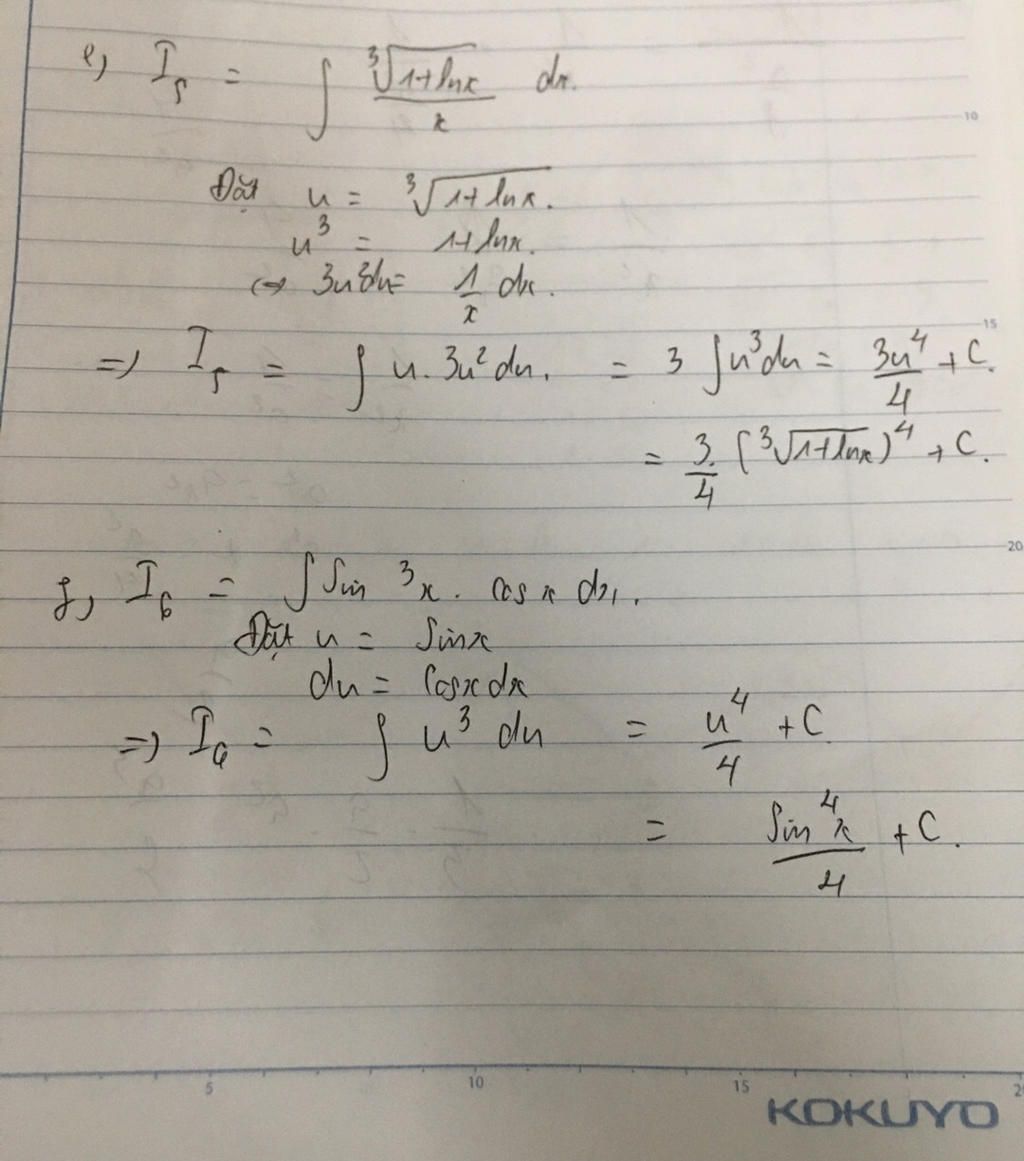 e) I₅ = ∫ ∛(1+lnx)/x dx.
10
Đặt u = ∛(1+lnx).
u³ = 1+lnx.
⇔ 3u²du = 1/x dx.
15
=> I₅ = ∫ u.3u²du. = 3 ∫u³du = 3u⁴/4 + C.
= 3/4 (∛(1+lnx))⁴ + C.
20
f) I₆ = ∫sin³x. cosx dx.
Đặt u = sinx
du = cosx dx
=> I₆ = ∫ u³ du = u⁴/4 + C
= sin⁴x/4 + C.
5 10 15
KOKUYO